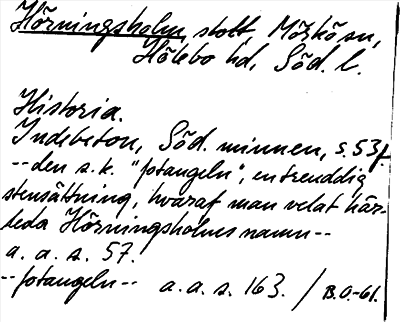 Hörningsholm, slott, Mörkö sn,
Hölebo hd, Söd. l.
Historia.
Indebetou, Söd. minnen, s. 53f
-- den s.k. "fotangeln", en treuddig
stensättning, hvaraf man velat här-
leda Hörningsholms namn --
a. a. s. 57.
-- fotangeln -- a. a. s. 163. / B.O.-61.